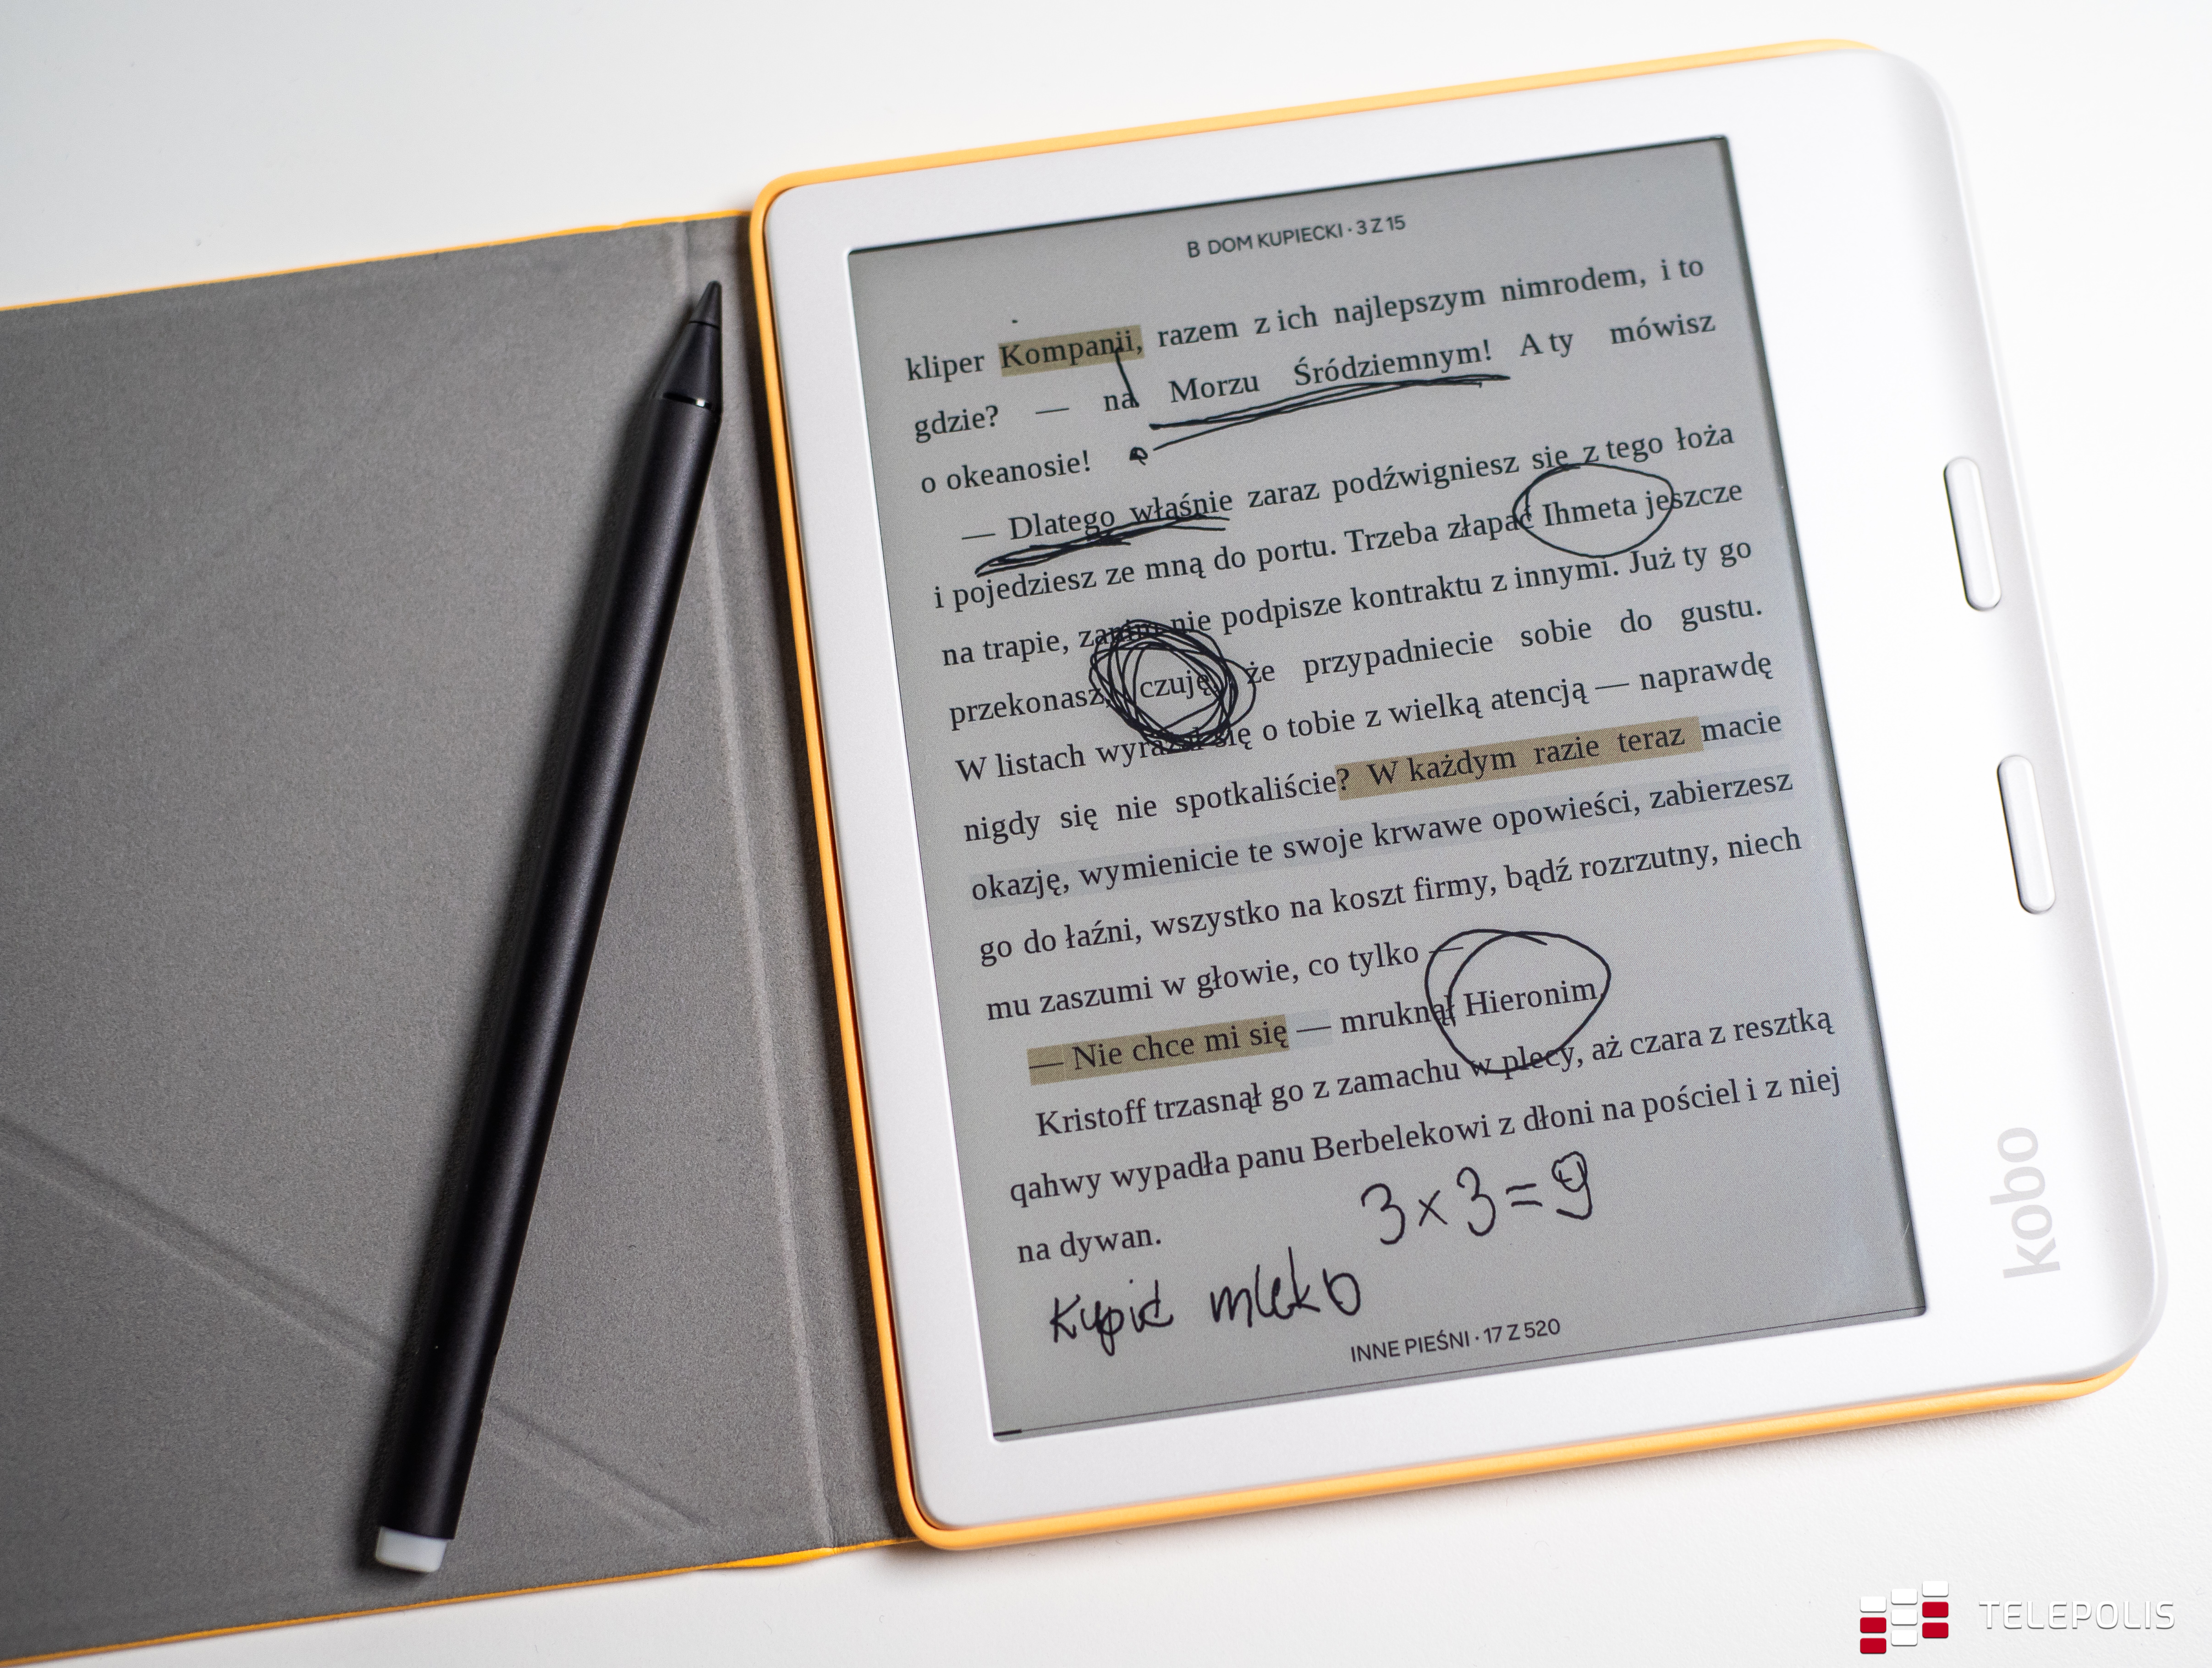 B DOM KUPIECKI · 3 Z 15
kliper Kompanii, razem z ich najlepszym nimrodem, i to
gdzie? — na Morzu Śródziemnym! A ty mówisz
o okeanosie!
— Dlatego właśnie zaraz podźwigniesz się z tego łoża
i pojedziesz ze mną do portu. Trzeba złapać Ihmeta jeszcze
na trapie, zanim nie podpisze kontraktu z innymi. Już ty go
przekonasz, czuję, że przypadniecie sobie do gustu.
W listach wyrażał się o tobie z wielką atencją — naprawdę
nigdy się nie spotkaliście? W każdym razie teraz macie
okazję, wymienicie te swoje krwawe opowieści, zabierzesz
go do łaźni, wszystko na koszt firmy, bądź rozrzutny, niech
mu zaszumi w głowie, co tylko —
— Nie chce mi się — mruknął Hieronim.
Kristoff trzasnął go z zamachu w plecy, aż czara z resztką
qahwy wypadła panu Berbelekowi z dłoni na pościel i z niej
na dywan.
3 x 3 = 9
Kupić mleko
INNE PIEŚNI · 17 Z 520
kobo
TELEPOLIS